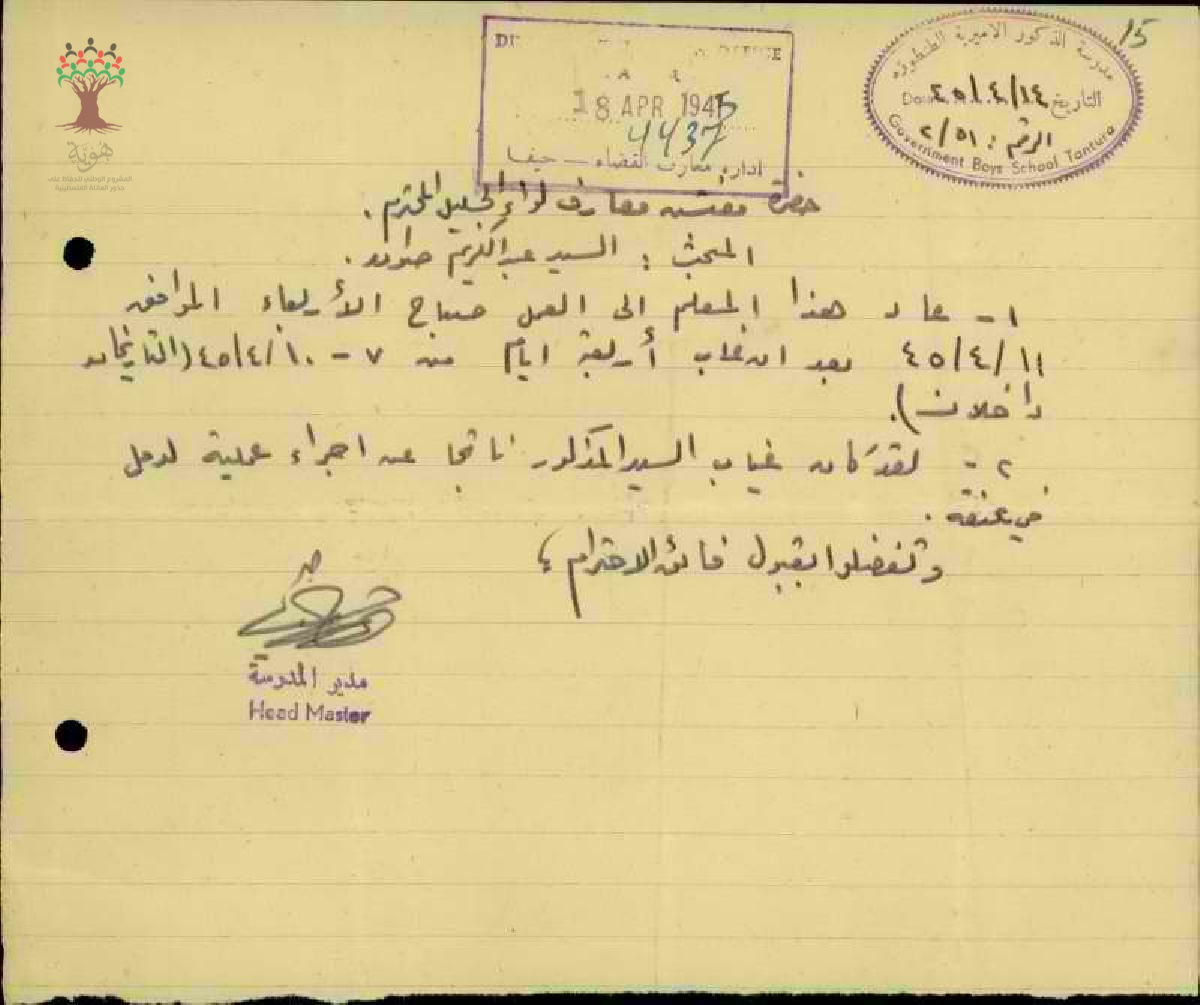 15
مدرسة الذكور الاميرية الطنطورة
التاريخ ٤٥/٤/١٤
الرقم : ٢/٥١
Government Boys School Tantura
OFFICE
18 APR 1945
4437
ادارة معارف القضاء — حيفا
هوية
المشروع الوطني للحفاظ على
جذور العائلة الفلسطينية
حضرة مفتش معارف لواء الجليل المحترم .
المبحث : السيد عبد الكريم
١- عاد هذا المعلم الى العمل صباح الأربعاء الموافق
٤٥/٤/١١ بعد ان غاب أربعة ايام من ٧ - ٤٥/٤/١٠ (التاريخان
داخلان).
٢- لقد كان غياب السيد المذكور ناتجا عن اجراء عملية لدمل
في عنقه .
وتفضلوا بقبول فائق الاحترام ،
مدير المدرسة
Head Master